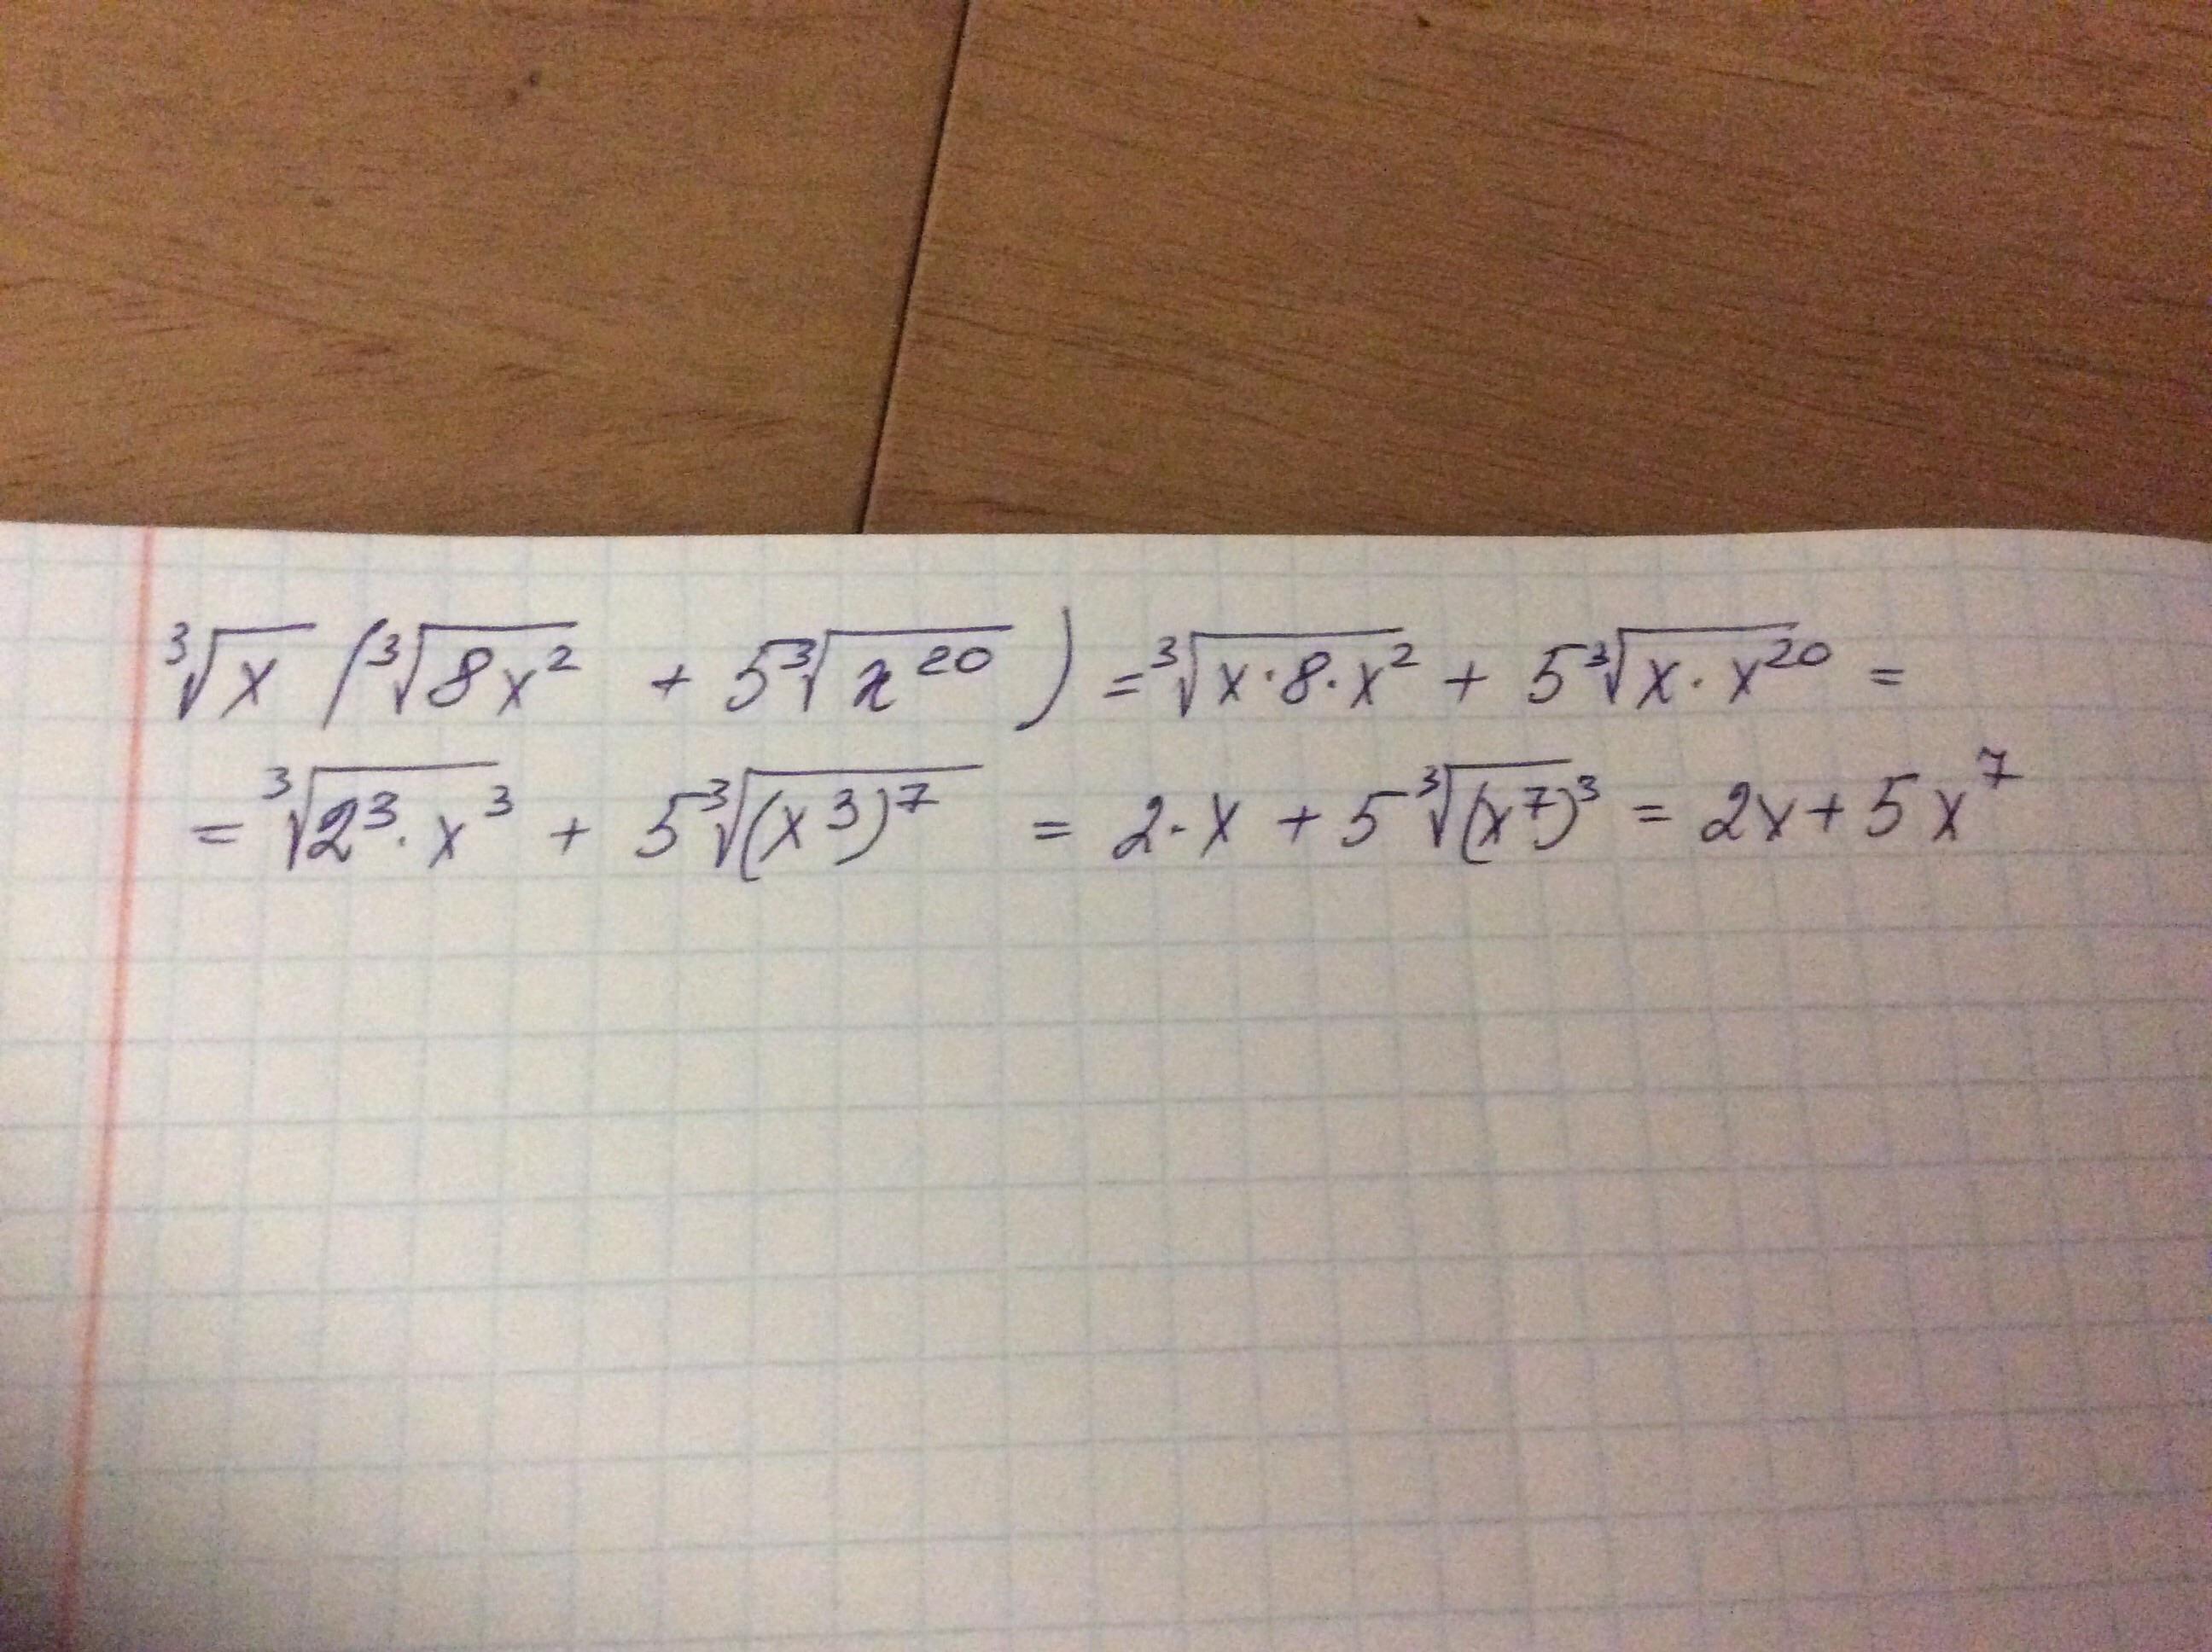 ∛x (∛8x² + 5∛x²⁰) = ∛x·8·x² + 5∛x·x²⁰ =
= ∛2³·x³ + 5∛(x³)⁷ = 2·x + 5∛(x⁷)³ = 2x + 5x⁷